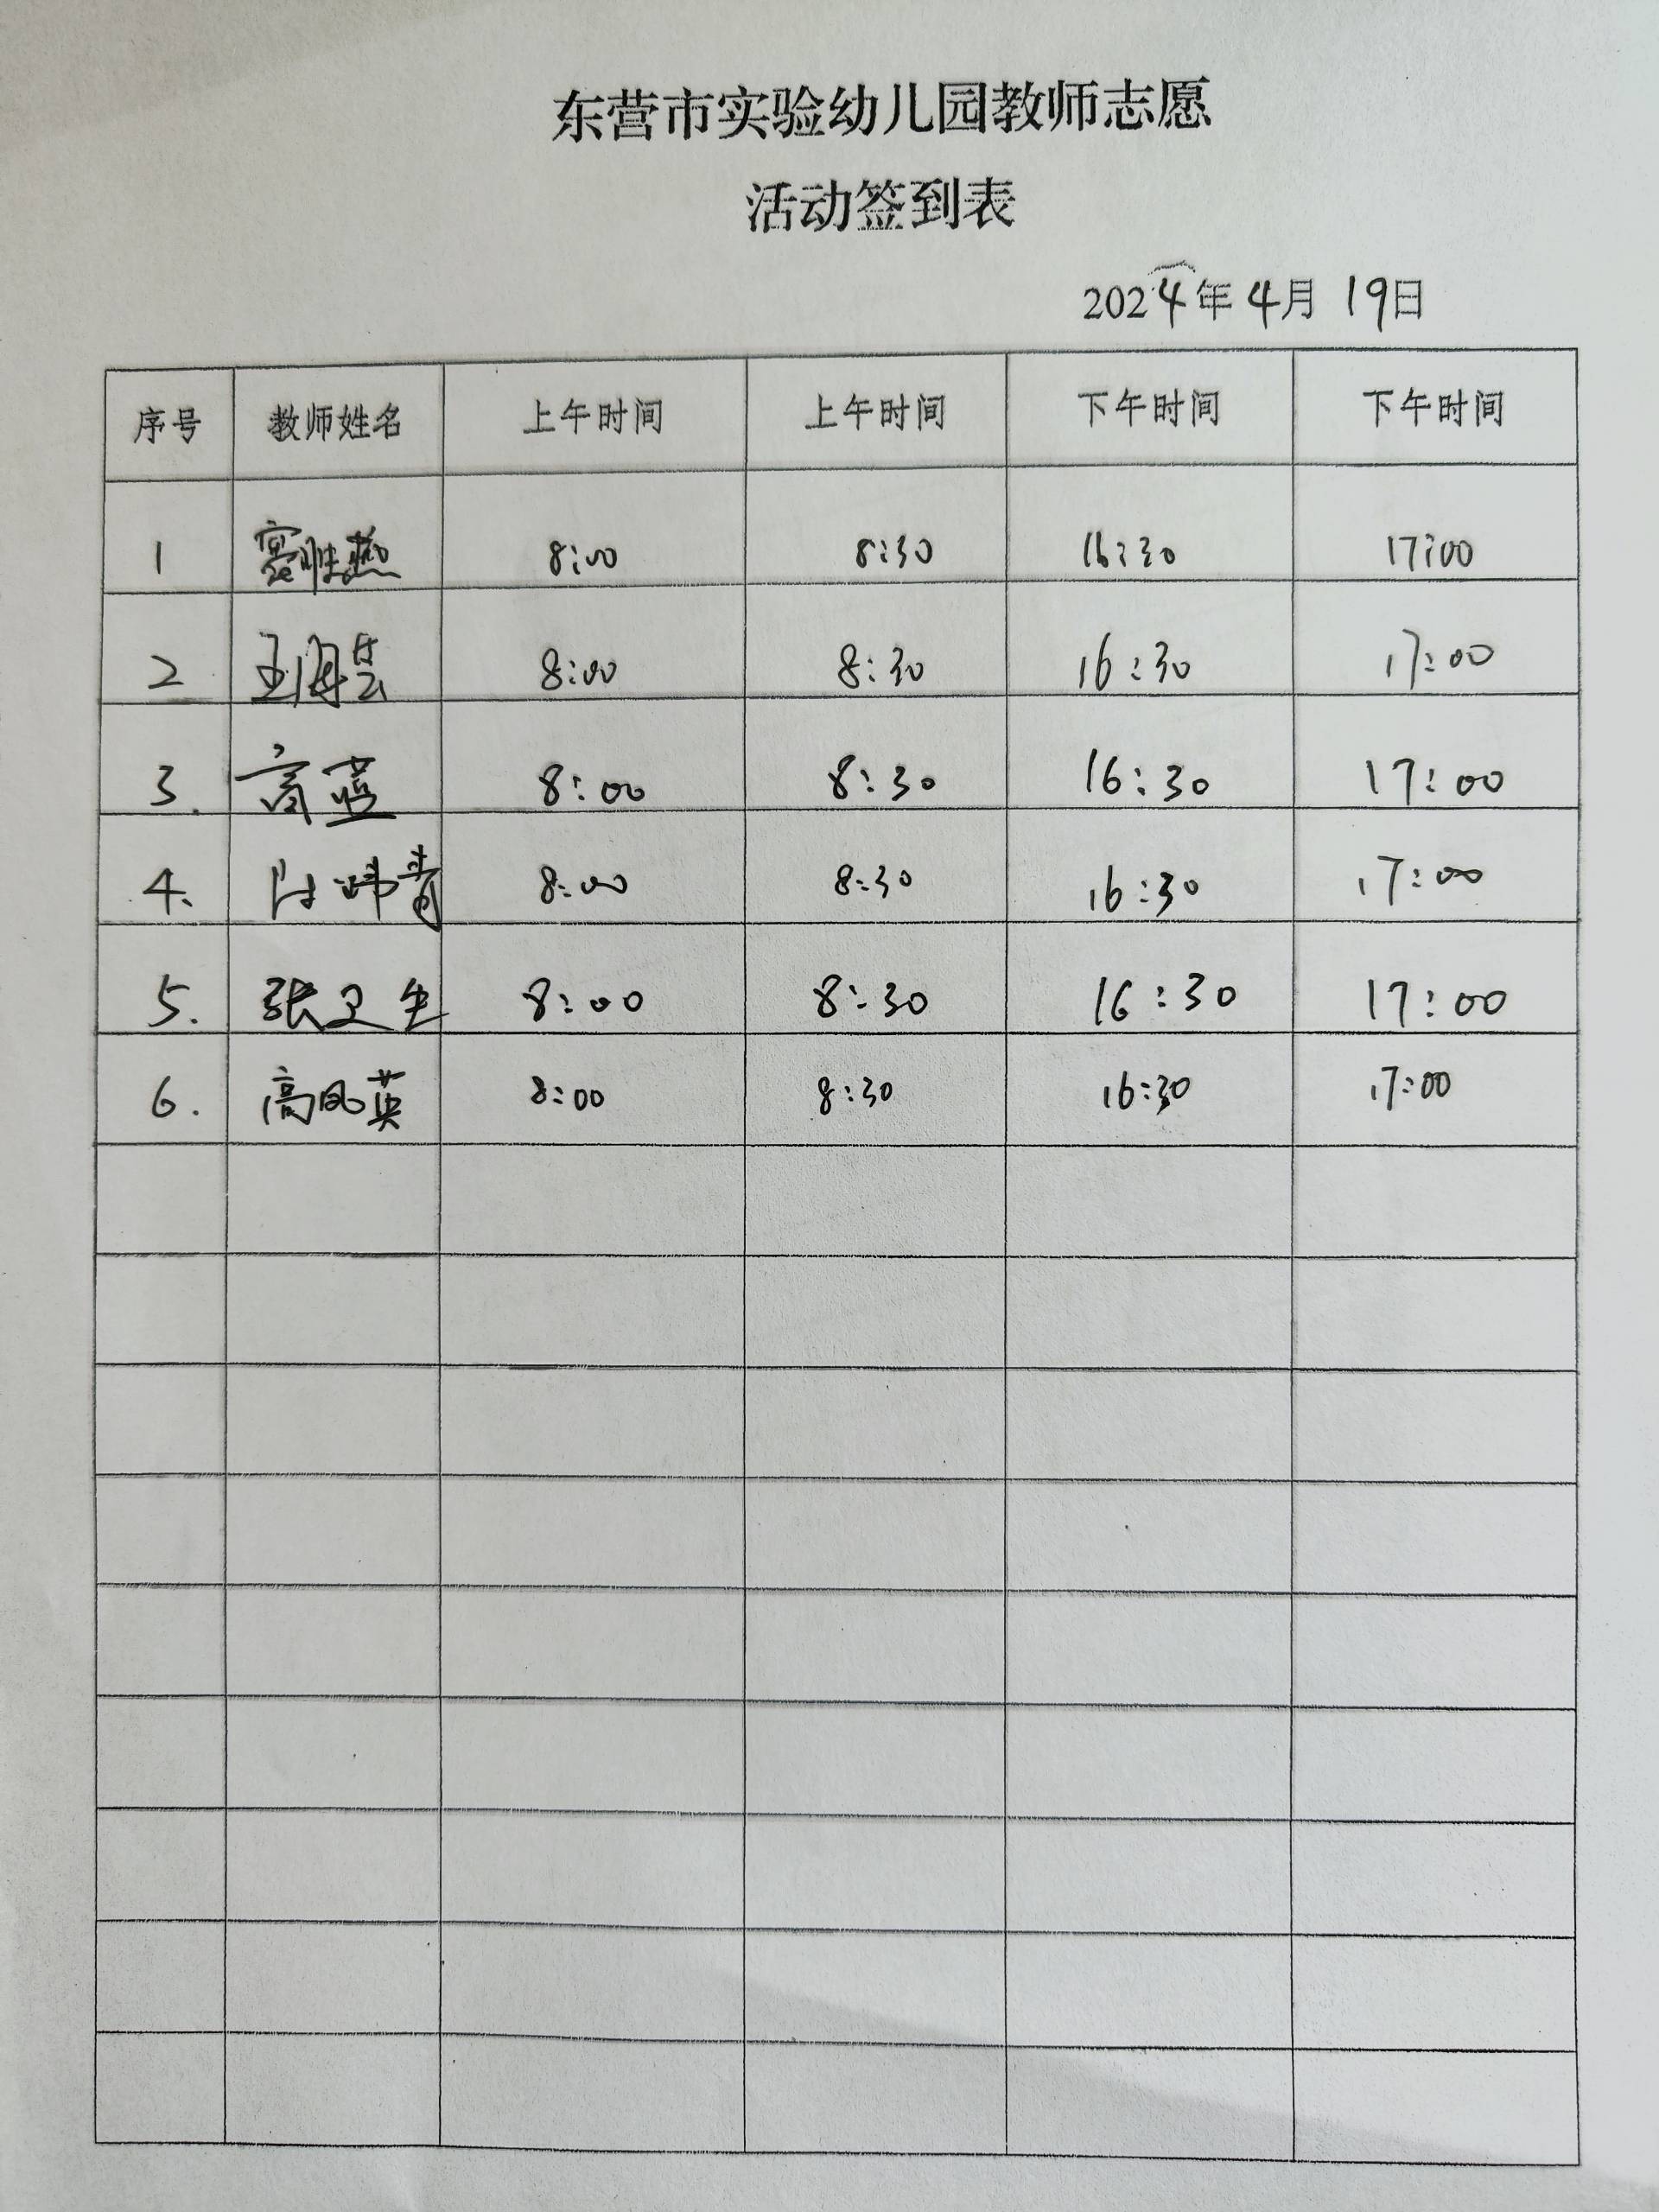 东营市实验幼儿园教师志愿
活动签到表
2024年4月19日
序号 教师姓名 上午时间 上午时间 下午时间 下午时间
1 窦胜燕 8:00 8:30 16:30 17:00
2 王海芸 8:00 8:30 16:30 17:00
3. 高蓝 8:00 8:30 16:30 17:00
4. 8:00 8:30 16:30 17:00
5. 张卫生 8:00 8:30 16:30 17:00
6. 高凤英 8:00 8:30 16:30 17:00